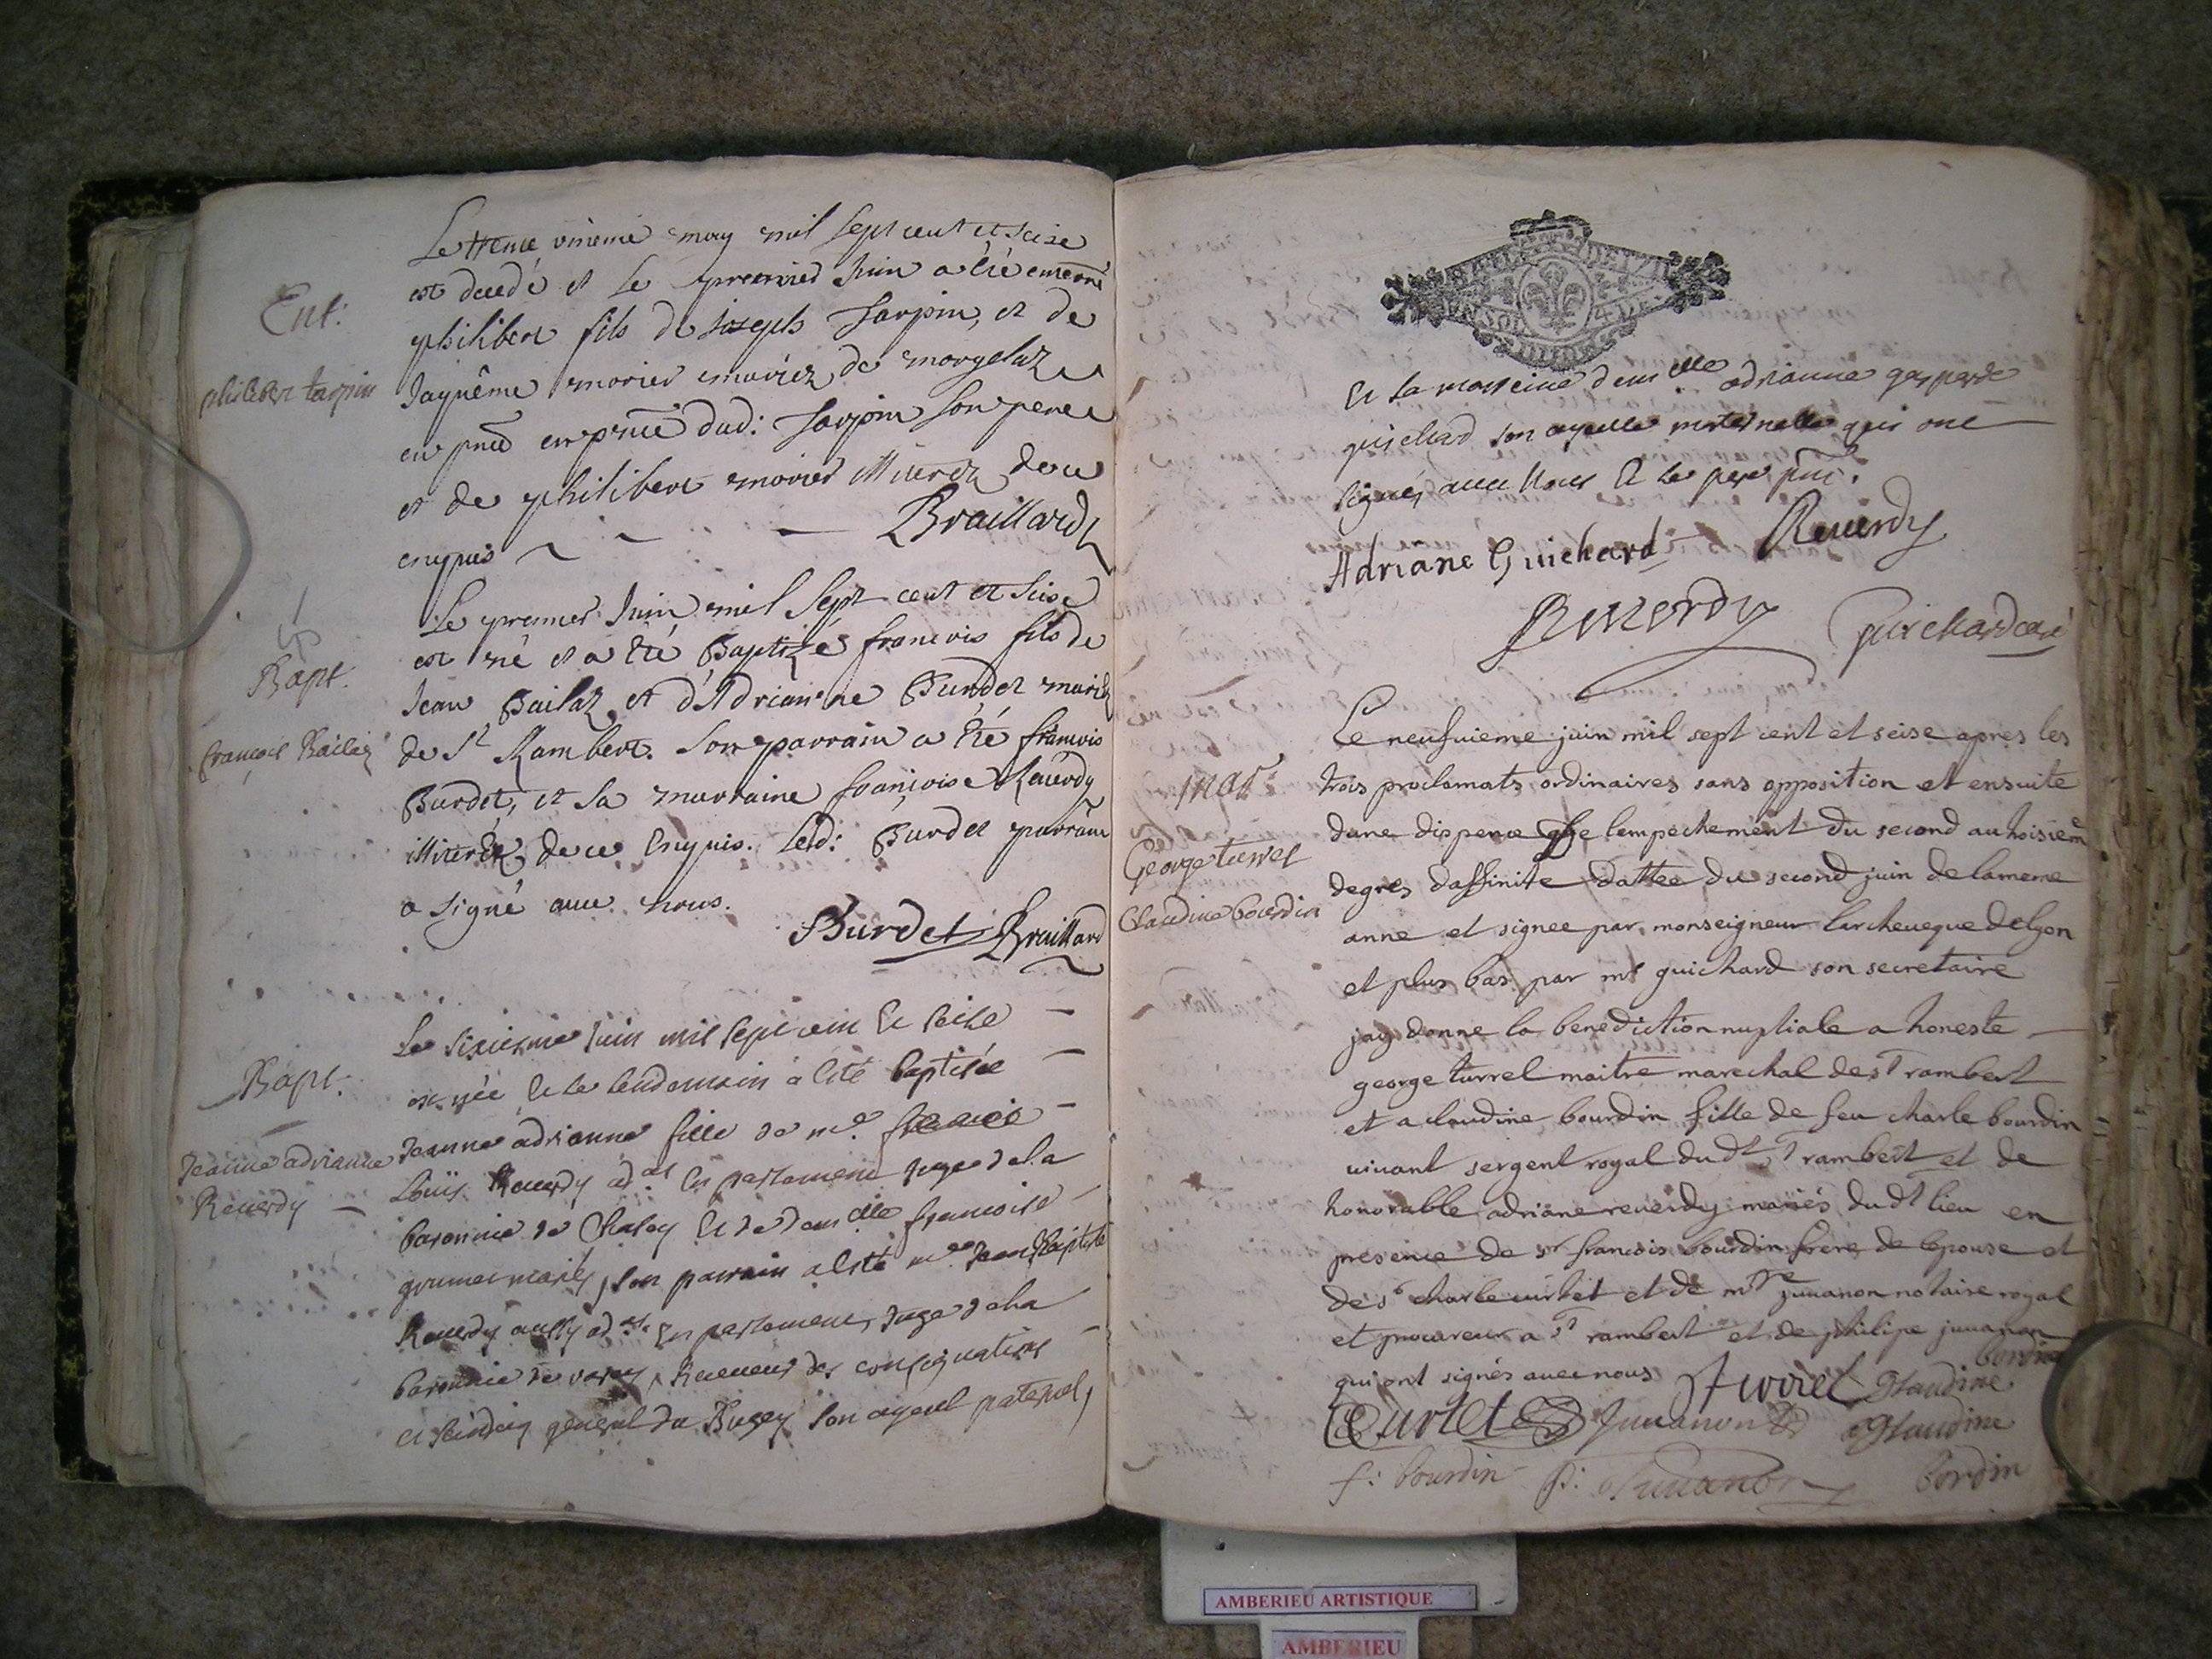 Ent:
philibert tarpin
Le trente unieme may mil sept cent et seise
est decedé et le premier Juin a été enterré
philibert fils de Joseph Tarpin, et de
Jaquême morier mariez de morgelaz
en pnce dud: Tarpin son pere
et de philibert morier illiterez de ce
enquis Braillard
Bapt.
françois Bailaz
Le premier Juin mil sept cent et seise
est né et a été Baptizé francois fils de
Jean Bailaz et d'Adrianne Burdet mariez
de St Rambert. Son parrain a été francois
Burdet, et sa marraine françoise Reuerdy
illiterée de ce enquis. Led: Burdet parrain
a signé auec nous.
Burdet Braillard
Bapt.
Jeanne adrianne
Reuerdy
Le sixiesme Juin mil sept cent et seise
est née et le lendemain a esté baptisée
Jeanne adrianne fille de me
Loüis Reuerdy adat en parlement Juge de la
baronnie de Chasey et de demelle francoise
grumet mariés, son parrain a esté me Jean Baptiste
Reuerdy aussy adat en parlement, Juge de la
baronnie de varey, Receueur des consignations
et scindic general du Bugey son ayeul paternel,
et la marreine demelle adrianne gasparde
guichard son ayeulle maternelle qui ont
signés auec nous et le pere pnt.
Adriane Guichard Reuerdy
Reuerdy Guichard curé
mar:
George turrel
Claudine bourdin
Le neufuieme juin mil sept cent et seise apres les
trois proclamats ordinaires sans opposition et ensuite
dune dispence lempechement du second au troisieme
degres daffinite dattee du second juin de la meme
anne et signee par monseigneur larcheueque de lyon
et plus bas par mr guichard son secretaire
jay donne la benediction nuptiale a honeste
george turrel maitre marechal de st rambert
et a claudine bourdin fille de feu charle bourdin
uiuant sergent royal dudt st rambert et de
honorable adriane reuerdy mariés dudt lieu en
presence de sr francois bourdin frere de lepouse et
de sr charle curtet et de mre juuanon notaire royal
et procureur a st rambert et de philipe juuanon
qui ont signés auec nous Turrel Glaudine
bordin
Curtet Juuanon Glaudine
f: bourdin p: Juuanon bordin
AMBERIEU ARTISTIQUE
AMBERIEU